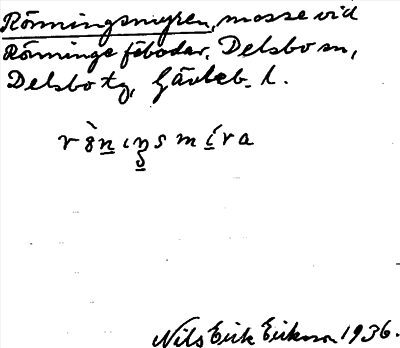 Rönningsmyren, mosse vid
Rönninge fäbodar, Delsbo sn,
Delsbo tg, Gävleb. l.
Nils Erik Erikson 1936.